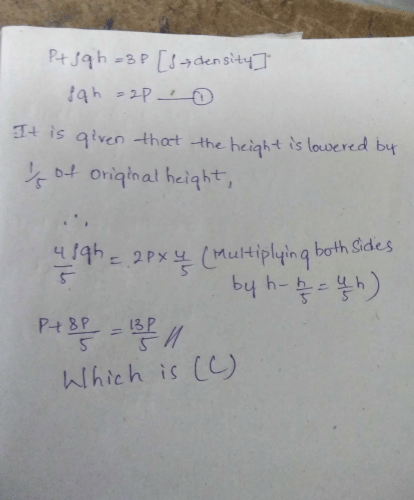 P+ρgh = 3P [ρ→density]
ρgh = 2P — ①
It is given that the height is lowered by
1/5 of original height,
∴
4/5 ρgh = 2P × 4/5 (Multiplying both sides
by h - h/5 = 4/5 h)
P+ 8P/5 = 13P/5 //
Which is (C)